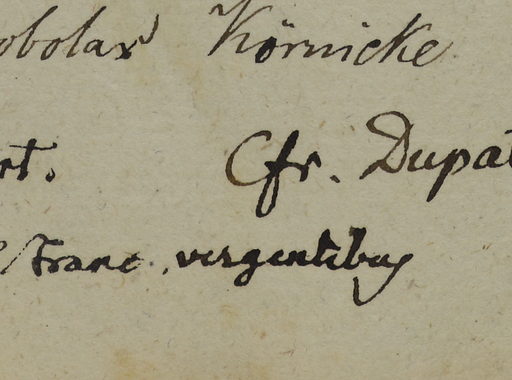 obolax Körnicke
rt. Cfr. Dupat
Franc. vergentibus